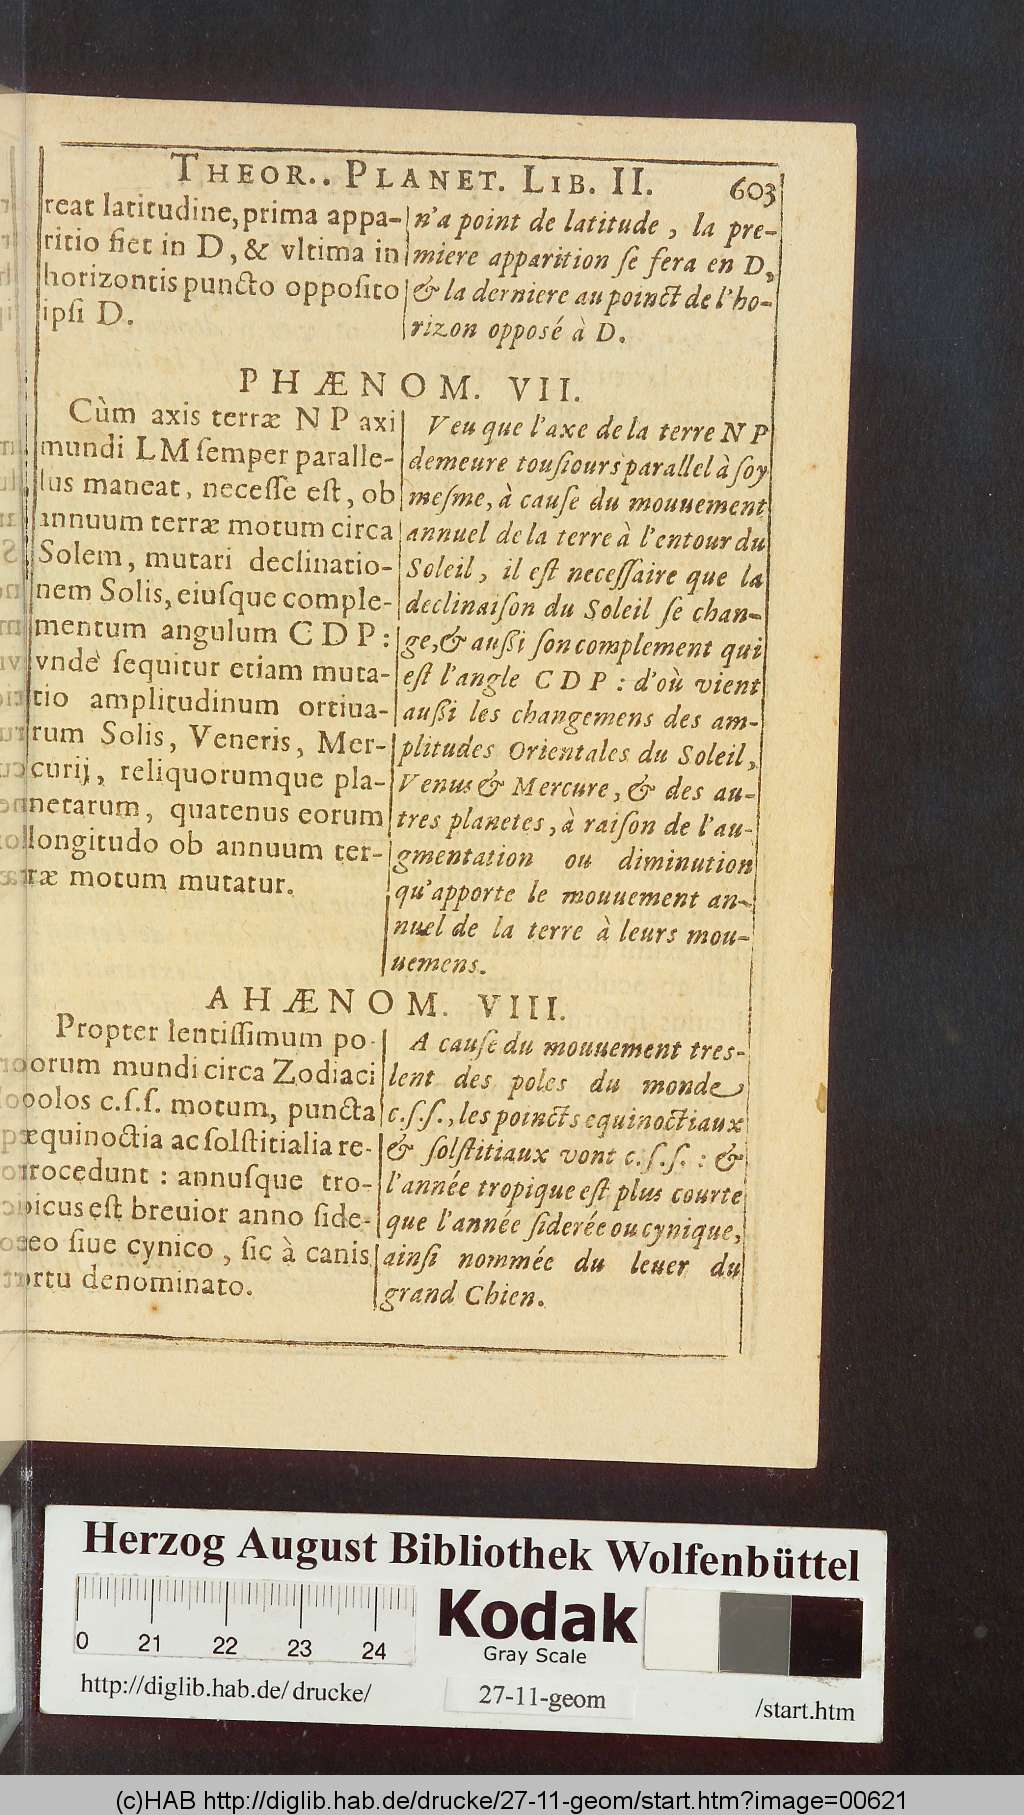 THEOR.. PLANET. LIB. II. 603
reat latitudine, prima appa-
ritio fiet in D, & vltima in
horizontis puncto opposito
ipsi D.
n'a point de latitude, la pre-
miere apparition se fera en D,
& la derniere au poinct de l'ho-
rizon opposé à D.
PHÆNOM. VII.
Cùm axis terræ N P axi
mundi L M semper paralle-
lus maneat, necesse est, ob
annuum terræ motum circa
Solem, mutari declinatio-
nem Solis, eiusque comple-
mentum angulum C D P:
vnde sequitur etiam muta-
tio amplitudinum ortiua-
rum Solis, Veneris, Mer-
curij, reliquorumque pla-
netarum, quatenus eorum
longitudo ob annuum ter-
ræ motum mutatur.
Veu que l'axe de la terre N P
demeure tousiours parallel à soy
mesme, à cause du mouuement
annuel de la terre à l'entour du
Soleil, il est necessaire que la
declinaison du Soleil se chan-
ge, & aussi son complement qui
est l'angle C D P : d'où vient
aussi les changemens des am-
plitudes Orientales du Soleil,
Venus & Mercure, & des au-
tres planetes, à raison de l'au-
gmentation ou diminution
qu'apporte le mouuement an-
nuel de la terre à leurs mou-
uemens.
AHÆNOM. VIII.
Propter lentissimum po-
orum mundi circa Zodiaci
polos c.s.s. motum, puncta
æquinoctia ac solstitialia re-
trocedunt : annusque tro-
picus est breuior anno side-
eo siue cynico, sic à canis
ortu denominato.
A cause du mouuement tres-
lent des poles du monde
c.s.s., les poincts equinoctiaux
& solstitiaux vont c.s.s. : &
l'année tropique est plus courte
que l'année siderée ou cynique,
ainsi nommée du leuer du
grand Chien.
Herzog August Bibliothek Wolfenbüttel
0 21 22 23 24
Kodak
Gray Scale
http://diglib.hab.de/drucke/
27-11-geom
/start.htm
(c)HAB http://diglib.hab.de/drucke/27-11-geom/start.htm?image=00621